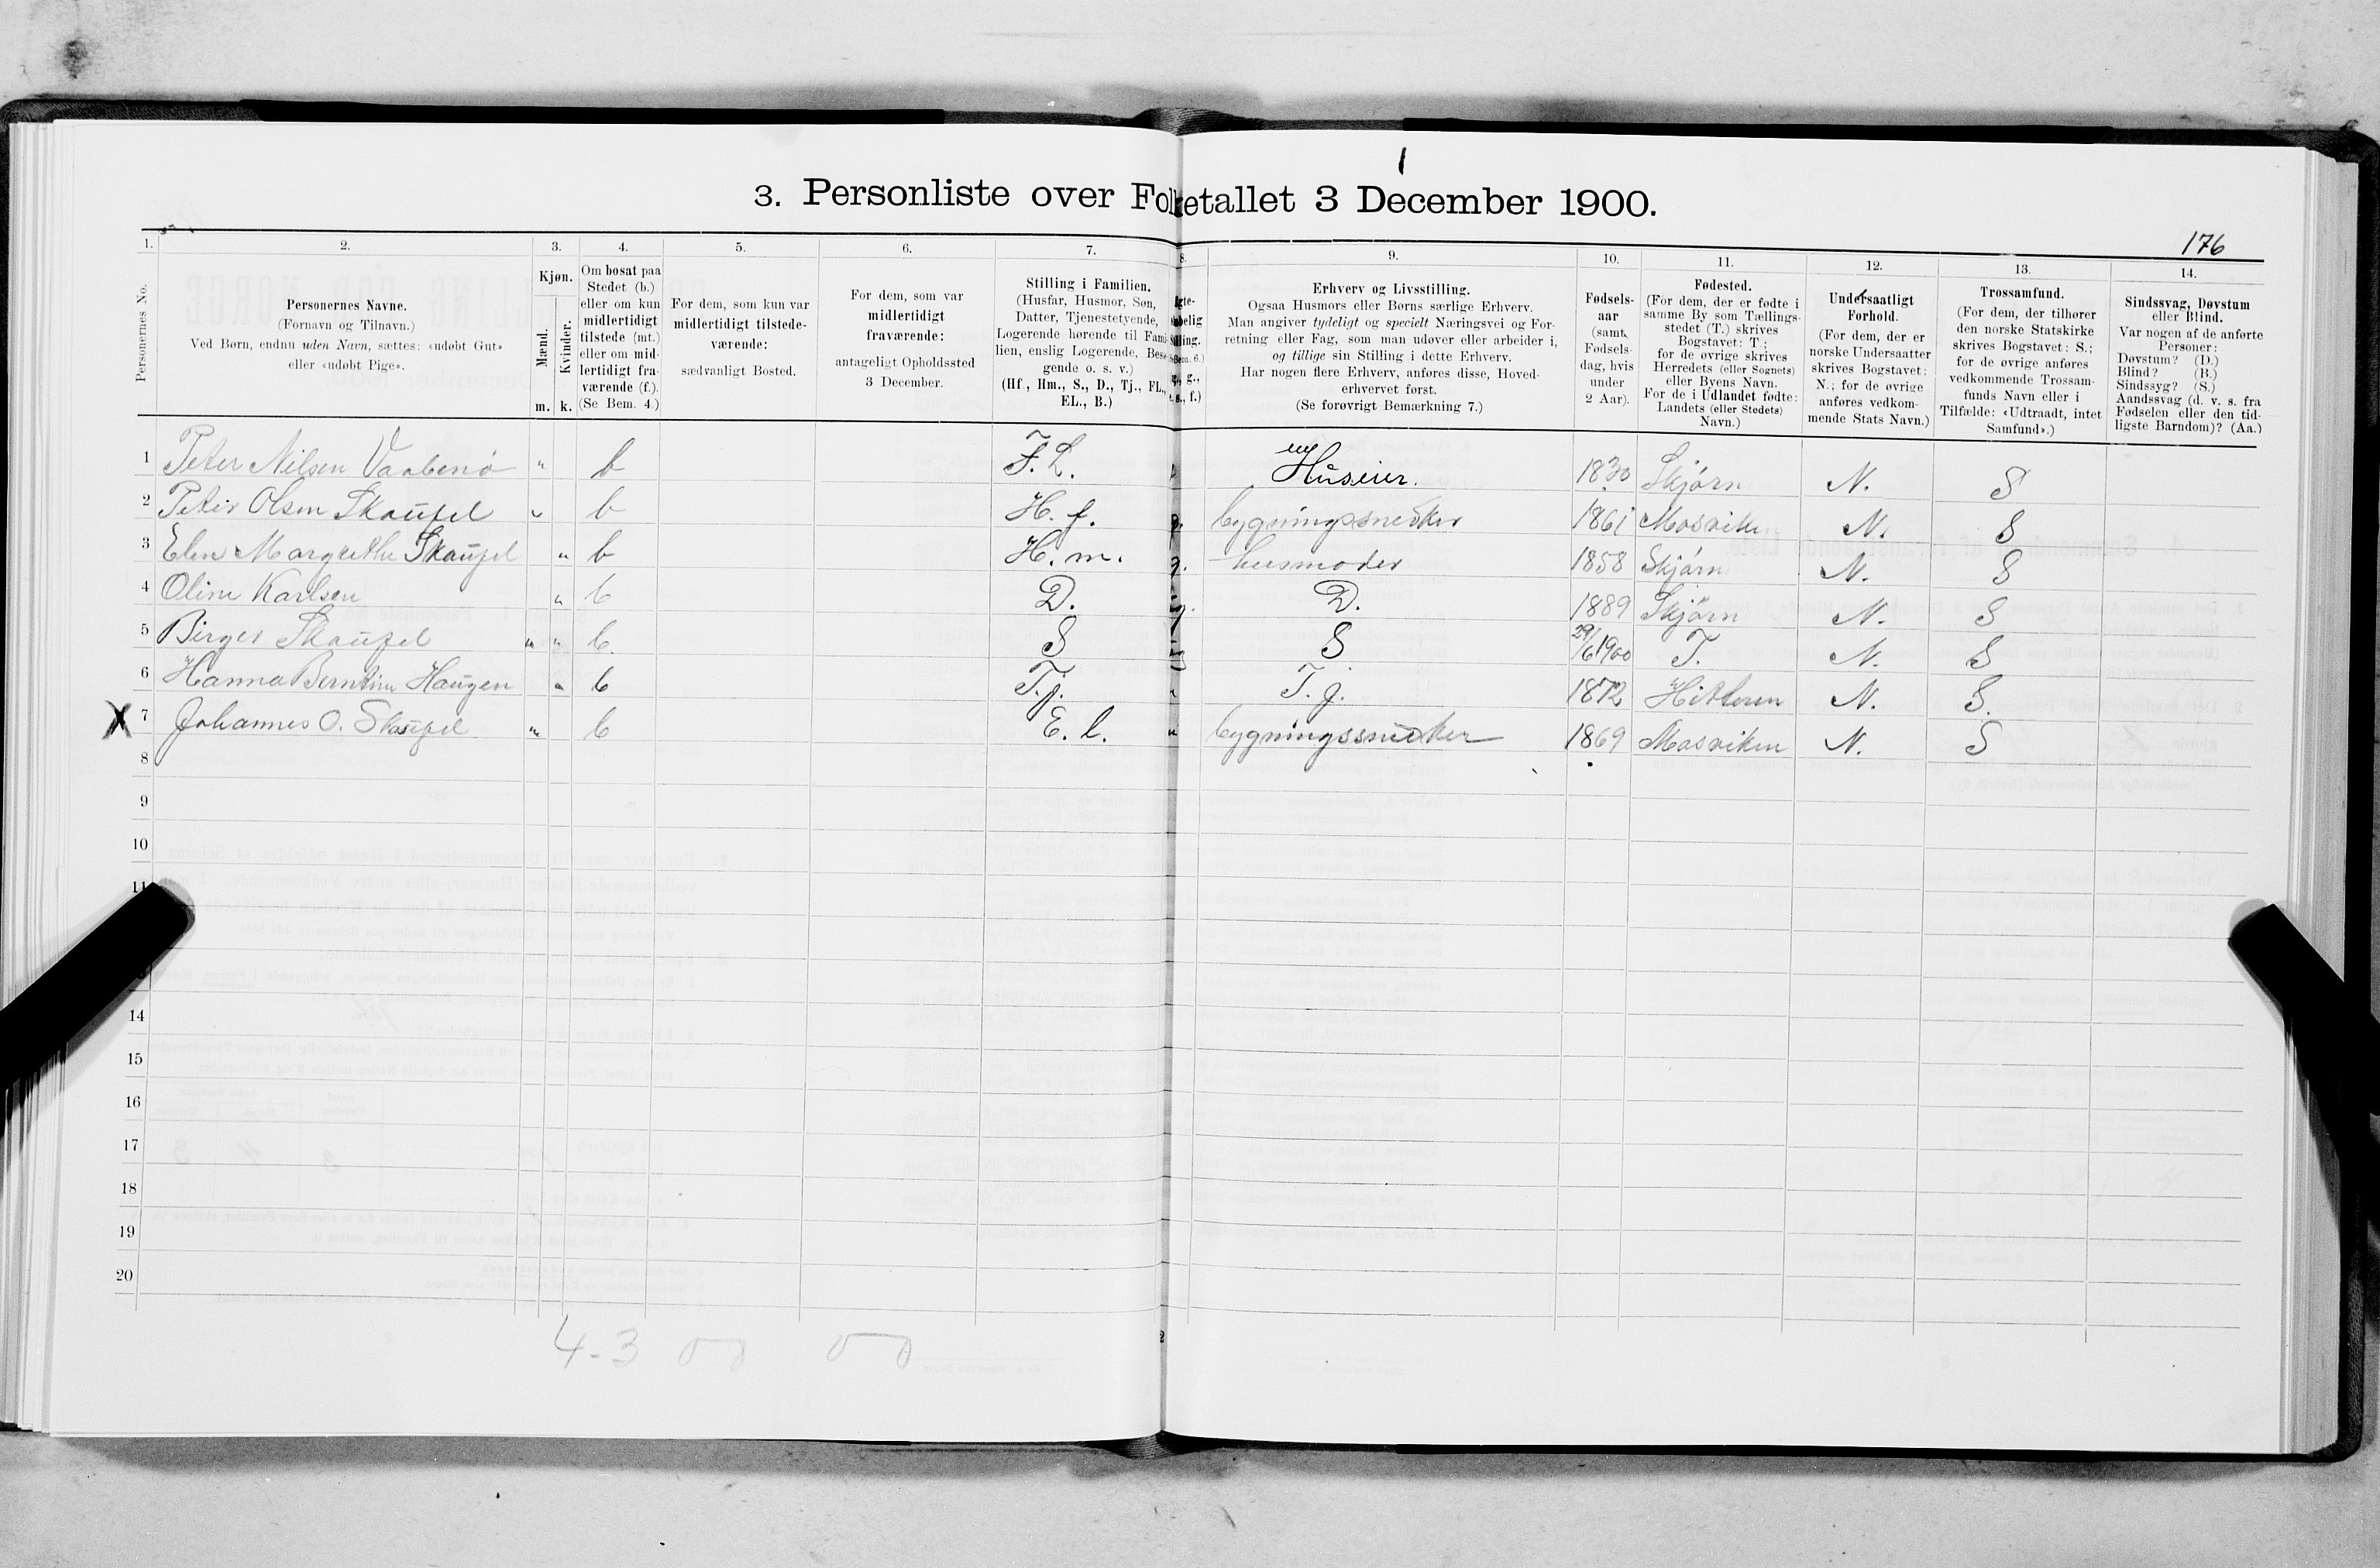 3. Personliste over Folketallet 3 December 1900.
176
1. 2. 3. 4. 5. 6. 7. 8. 9. 10. 11. 12. 13. 14.
Personernes No.
Personernes Navne.
(Fornavn og Tilnavn.)
Ved Børn, endnu uden Navn, sættes: «udøbt Gut»
eller «udøbt Pige».
Kjøn.
Mænd.
Kvinder.
m. k.
Om bosat paa
Stedet (b.)
eller om kun
midlertidigt
tilstede (mt.)
eller om mid-
lertidigt fra-
værende (f.).
(Se Bem. 4.)
For dem, som kun var
midlertidigt tilstede-
værende:
sædvanligt Bosted.
For dem, som var
midlertidigt
fraværende:
antageligt Opholdssted
3 December.
Stilling i Familien.
(Husfar, Husmor, Søn,
Datter, Tjenestetyende,
Logerende hørende til Fami-
lien, enslig Logerende, Besø-
gende o. s. v.)
(Hf., Hm., S., D., Tj., FL.,
EL., B.)
Erhverv og Livsstilling.
Ogsaa Husmors eller Børns særlige Erhverv.
Man angiver tydeligt og specielt Næringsvei og For-
retning eller Fag, som man udøver eller arbeider i,
og tillige sin Stilling i dette Erhverv.
Har nogen flere Erhverv, anføres disse, Hoved-
erhvervet først.
(Se forøvrigt Bemærkning 7.)
Fødsels-
aar
(samt
Fødsels-
dag, hvis
under
2 Aar).
Fødested.
(For dem, der er fødte i
samme By som Tællings-
stedet (T.) skrives
Bogstavet: T.;
for de øvrige skrives
Herredets (eller Sognets)
eller Byens Navn.
For de i Udlandet fødte:
Landets (eller Stedets)
Navn.)
Undersaatligt
Forhold.
(For dem, der er
norske Undersaatter
skrives Bogstavet:
N.; for de øvrige
anføres vedkom-
mende Stats Navn.)
Trossamfund.
(For dem, der tilhører
den norske Statskirke
skrives Bogstavet: S.;
for de øvrige anføres
vedkommende Trossam-
funds Navn eller i
Tilfælde: «Udtraadt, intet
Samfund».)
Sindssvag, Døvstum
eller Blind.
Var nogen af de anførte
Personer:
Døvstum? (D.)
Blind? (B.)
Sindssyg? (S.)
Aandssvag (d. v. s. fra
Fødselen eller den tid-
ligste Barndom)? (Aa.)
1 Peter Nilsen Vaabenø " b F. L. Huseier. 1830 Skjørn N. S
2 Peter Olsen Skaufel " b H. f. g. bygningssnedker 1861 Mosviken N. S
3 Elen Margrethe Skaufel " b H. m. g. husmoder 1858 Skjørn N. S
4 Oline Karlsen " b D. D. 1889 Skjørn N. S
5 Birger Skaufel " " b. S S 29/6 1900 T. N. S
6 Hanna Berntine Haugen " b T. j. T. j. 1872 Hitteren N. S.
X 7 Johannes O. Skaufel " b E. l. bygningssnedker 1869 Mosviken N. S
8
9
10
11
14
15
16
17
18
19
20
4-3
2